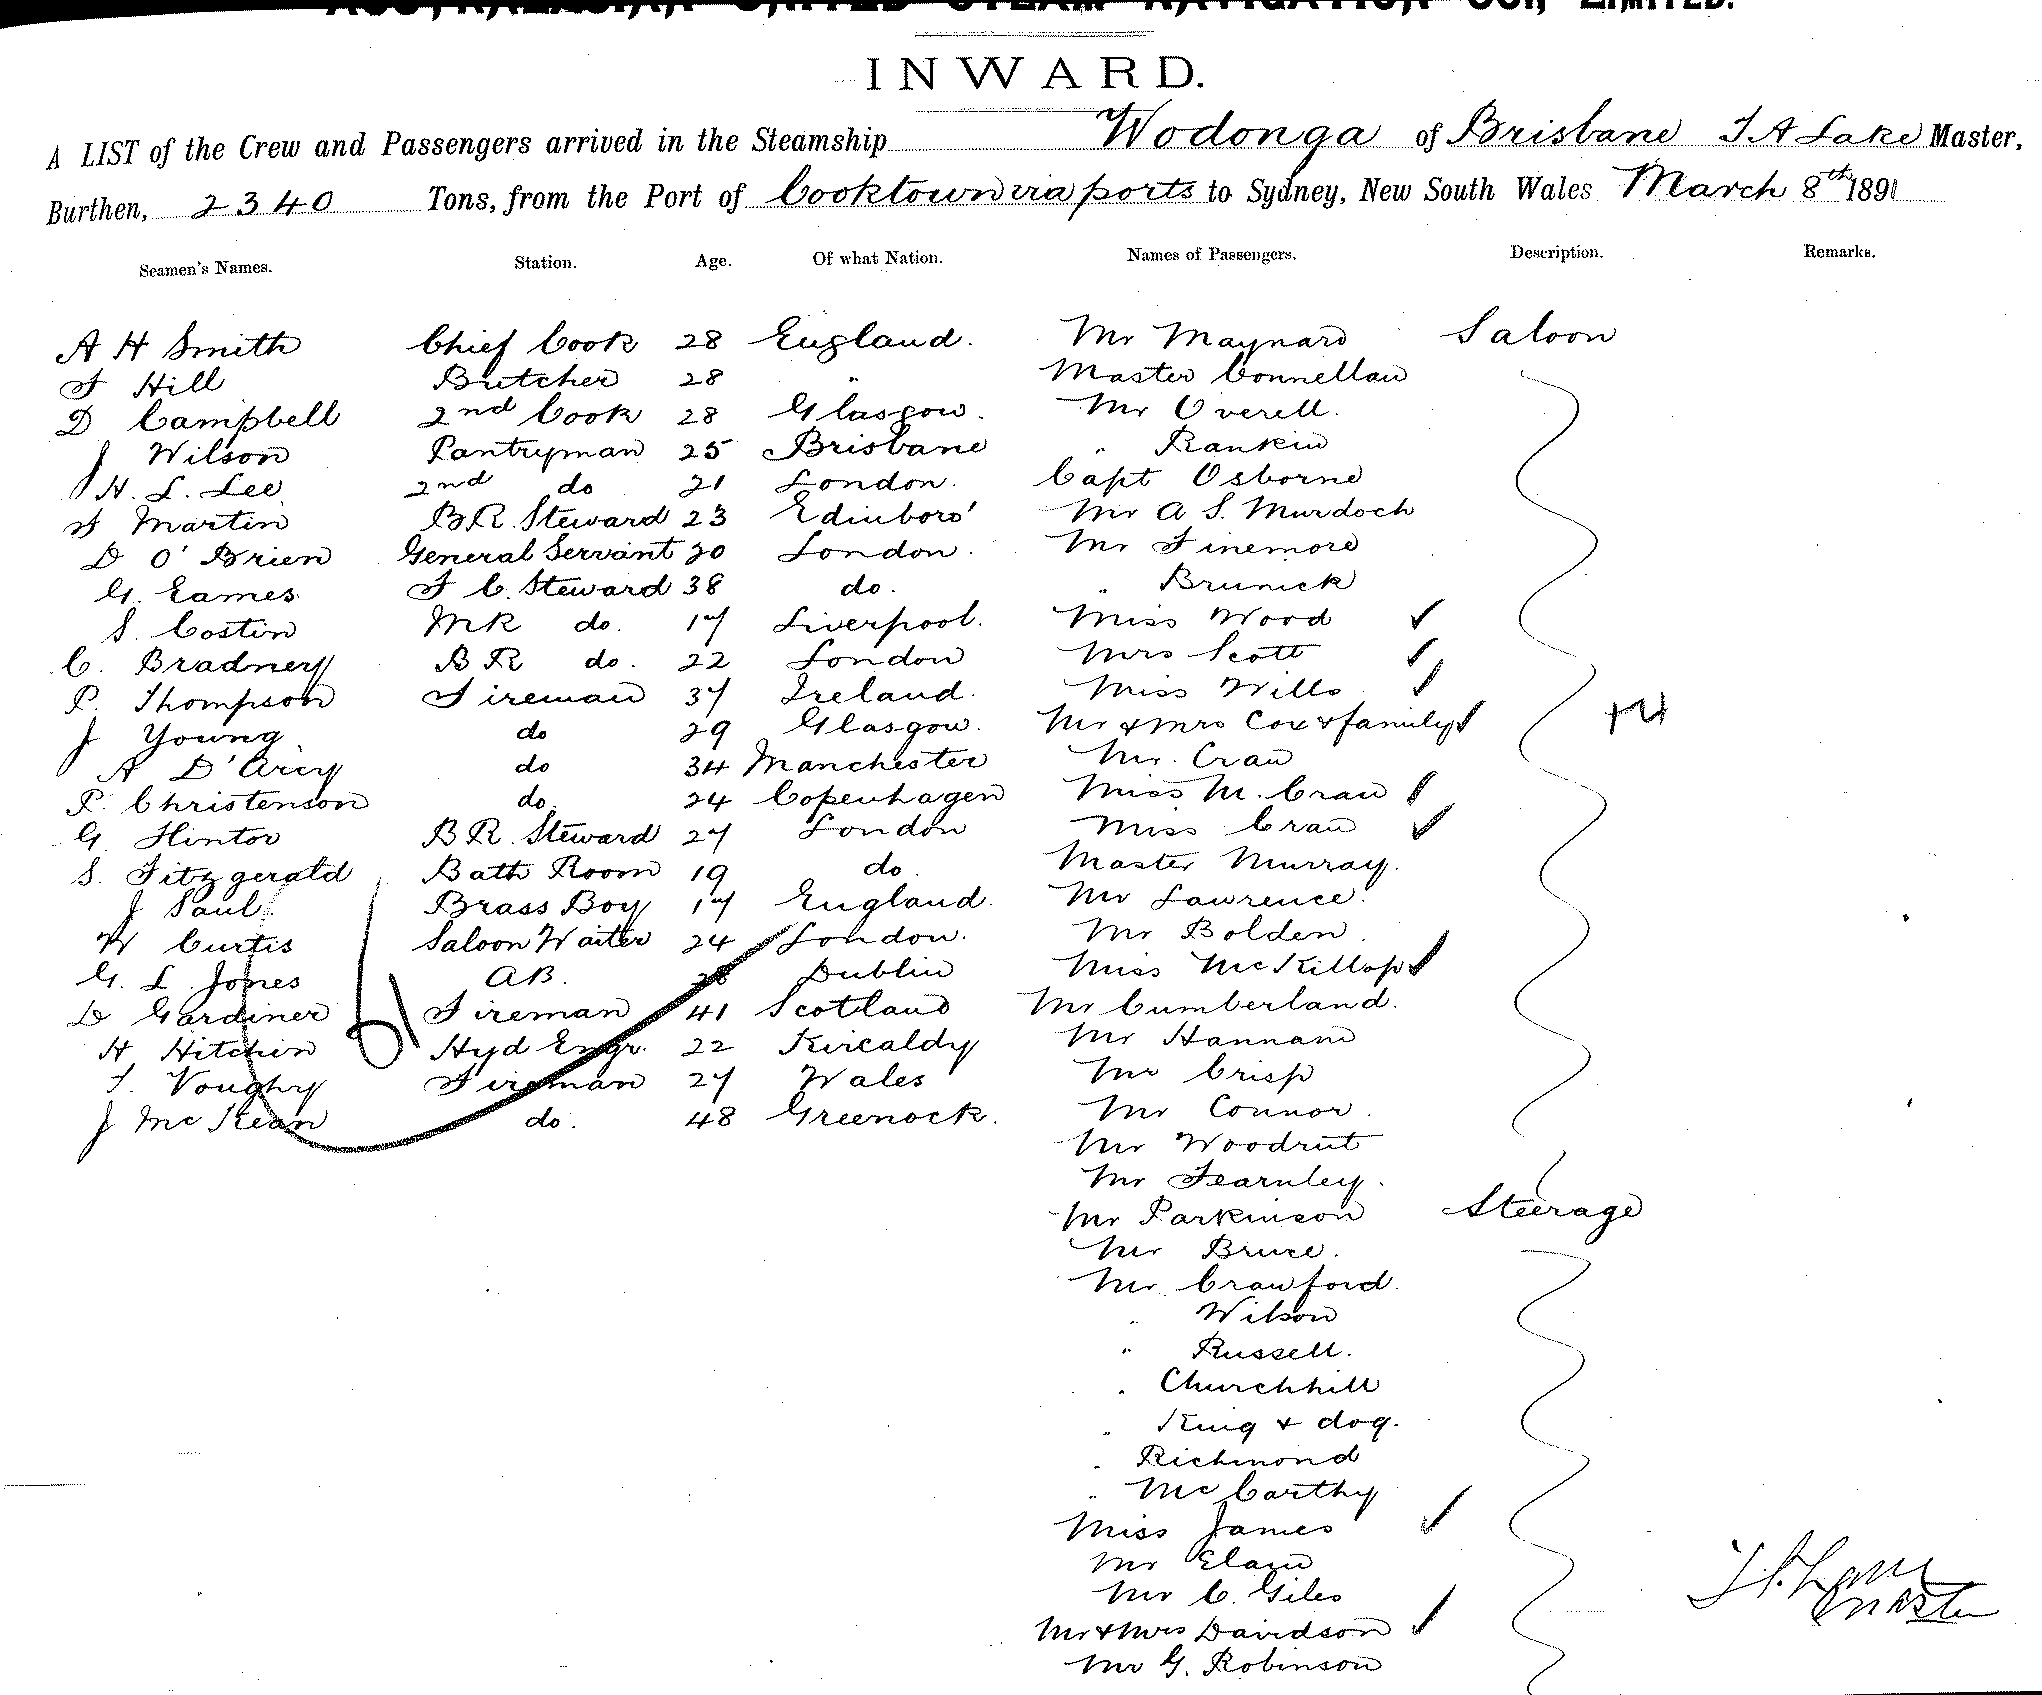 AUSTRALASIAN UNITED STEAM NAVIGATION CO., LIMITED.
INWARD.
A LIST of the Crew and Passengers arrived in the Steamship Wodonga of Brisbane T A Lake Master,
Burthen, 2340 Tons, from the Port of Cooktown via ports to Sydney, New South Wales March 8th 1891
Seamen's Names. Station. Age. Of what Nation. Names of Passengers. Description. Remarks.
A H Smith Chief Cook 28 England. Mr Maynard Saloon
F Hill Butcher 28 " Master Connellan
D Campbell 2nd Cook 28 Glasgow. Mr Overell.
J Wilson Pantryman 25 Brisbane " Rankin
H. L. Lee 2nd do 21 London. Capt Osborne
F Martin B.R. Steward 23 Edinboro' Mr A S. Murdoch
D O'Brien General Servant 20 London. Mr Finemore
G. Eames F C. Steward 38 do. " Brunick
S. Costin MR do. 17 Liverpool. Miss Wood
C. Bradney B R do. 22 London Mrs Scott
P. Thompson Fireman 37 Ireland. Miss Wills
J Young do 29 Glasgow. Mr & Mrs Cox & family 14
A D'Arcy do 34 Manchester Mr. Cran
P. Christenson do. 24 Copenhagen Miss M. Cran
G Hinton B R. Steward 27 London Miss Cran
S. Fitzgerald Bath Room 19 do. Master Murray.
J Paul Brass Boy 17 England. Mr Lawrence.
W Curtis Saloon Waiter 24 London. Mr Bolden.
G. L. Jones AB. 28 Dublin Miss McKillop
D Gardiner Fireman 41 Scotland Mr Cumberland.
H Hitchin Hyd Engr. 22 Kircaldy Mr Hannam
T. Voughy Fireman 27 Wales Mr Crisp
J McKean do. 48 Greenock. Mr Connor.
Mr Woodrut
Mr Fearnley.
Mr Parkinson Steerage
Mr Bruce.
Mr Crawford.
" Wilson
" Russell.
" Churchhill
" King & dog.
" Richmond
" McCarthy
Miss James
Mr Elam
Mr C. Giles
Mr & Mrs Davidson Master
Mr G. Robinson